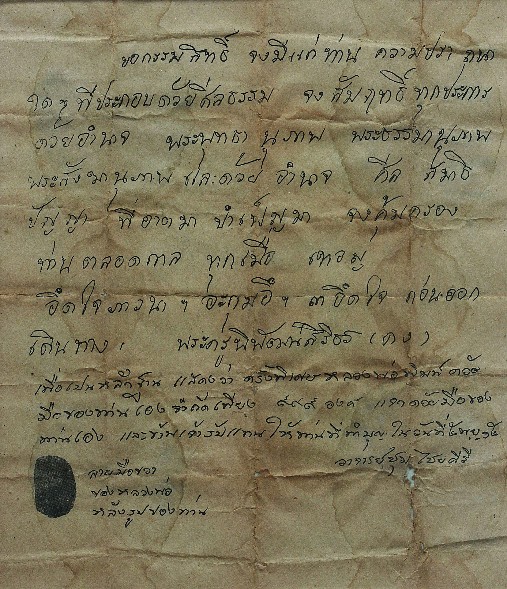 ขอกรรมสิทธิ์ จงมีแก่ท่าน ความปรารถนา
ใดๆ ที่ประกอบด้วยศีลธรรม จงสัมฤทธิ์ทุกประการ
ด้วยอำนาจ พระพุทธานุภาพ พระธรรมานุภาพ
พระสังฆานุภาพ และด้วย อำนาจ ศีล สมาธิ
ปัญญา ที่อาตมา บำเพ็ญมา จงคุ้มครอง
ท่านตลอดกาล ทุกเมื่อ เทอญ
อึดใจภาวนา ฯ อะกุมอึ ฯ ๓ อึดใจ ก่อนออก
เดินทาง พระครูพิพัฒน์สิริธร (คง)
เพื่อเป็นหลักฐาน แสดงว่า หลวงพ่อพิมพ์ด้วย
มือของท่านเอง จำกัดเพียง ๙๙๙ องค์ แจกด้วยมือของ
ท่านเอง และข้าพเจ้ารับแทน ให้ท่านที่ทำบุญ ในวันที่
อาจารย์ชุม ไชยคีรี
ลายมือขวา
ของหลวงพ่อ
หลังรูปของท่าน